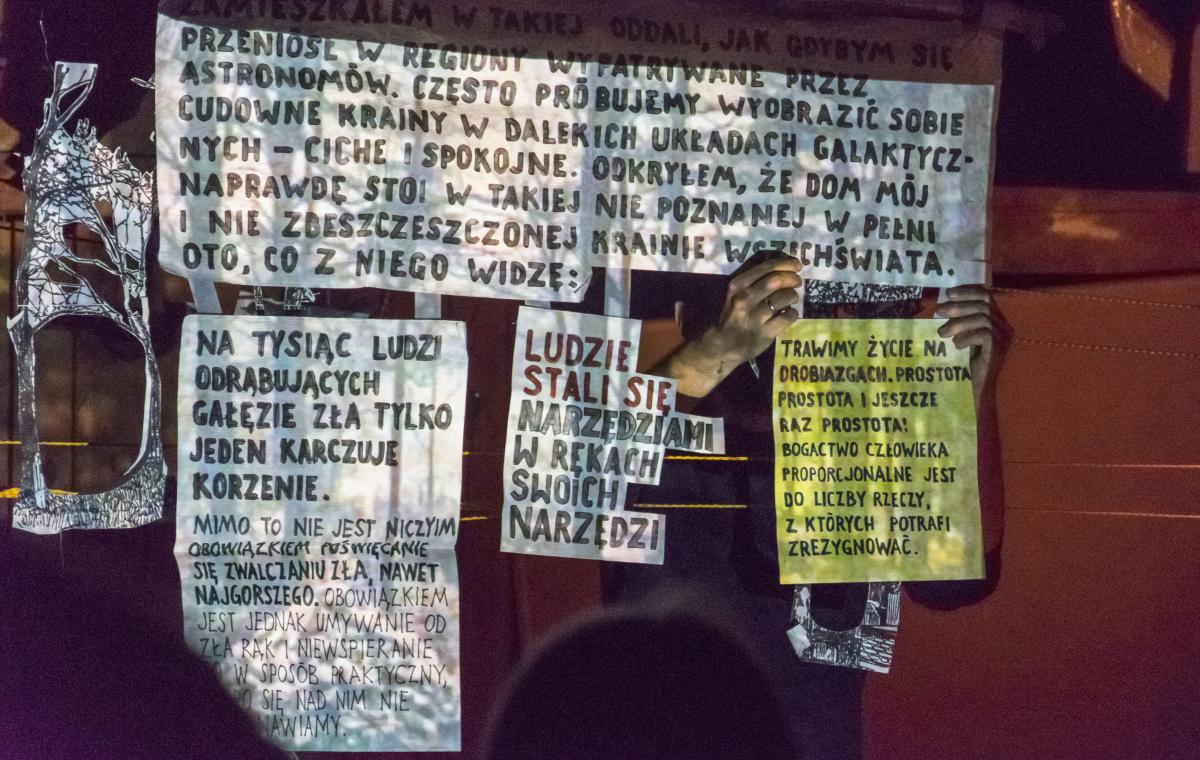 ZAMIESZKAŁEM W TAKIEJ ODDALI, JAK GDYBYM SIĘ
PRZENIÓSŁ W REGIONY WYPATRYWANE PRZEZ
ASTRONOMÓW. CZĘSTO PRÓBUJEMY WYOBRAZIĆ SOBIE
CUDOWNE KRAINY W DALEKICH UKŁADACH GALAKTYCZ-
NYCH – CICHE I SPOKOJNE. ODKRYŁEM, ŻE DOM MÓJ
NAPRAWDĘ STOI W TAKIEJ NIE POZNANEJ W PEŁNI
I NIE ZBESZCZESZCZONEJ KRAINIE WSZICHŚWIATA.
OTO, CO Z NIEGO WIDZĘ:
NA TYSIĄC LUDZI
ODRĄBUJĄCYCH
GAŁĘZIE ZŁA TYLKO
JEDEN KARCZUJE
KORZENIE.
MIMO TO NIE JEST NICZYIM
OBOWIĄZKIEM POŚWIĘCANIE
SIĘ ZWALCZANIU ZŁA, NAWET
NAJGORSZEGO. OBOWIĄZKIEM
JEST JEDNAK UMYWANIE OD
ZŁA RĄK I NIEWSPIERANIE
W SPOSÓB PRAKTYCZNY,
SIĘ NAD NIM NIE
LUDZIE
STALI SIĘ
NARZĘDZIAMI
W RĘKACH
SWOICH
NARZĘDZI
TRAWIMY ŻYCIE NA
DROBIAZGACH. PROSTOTA
PROSTOTA I JESZCZE
RAZ PROSTOTA!
BOGACTWO CZŁOWIEKA
PROPORCJONALNE JEST
DO LICZBY RZECZY,
Z KTÓRYCH POTRAFI
ZREZYGNOWAĆ.